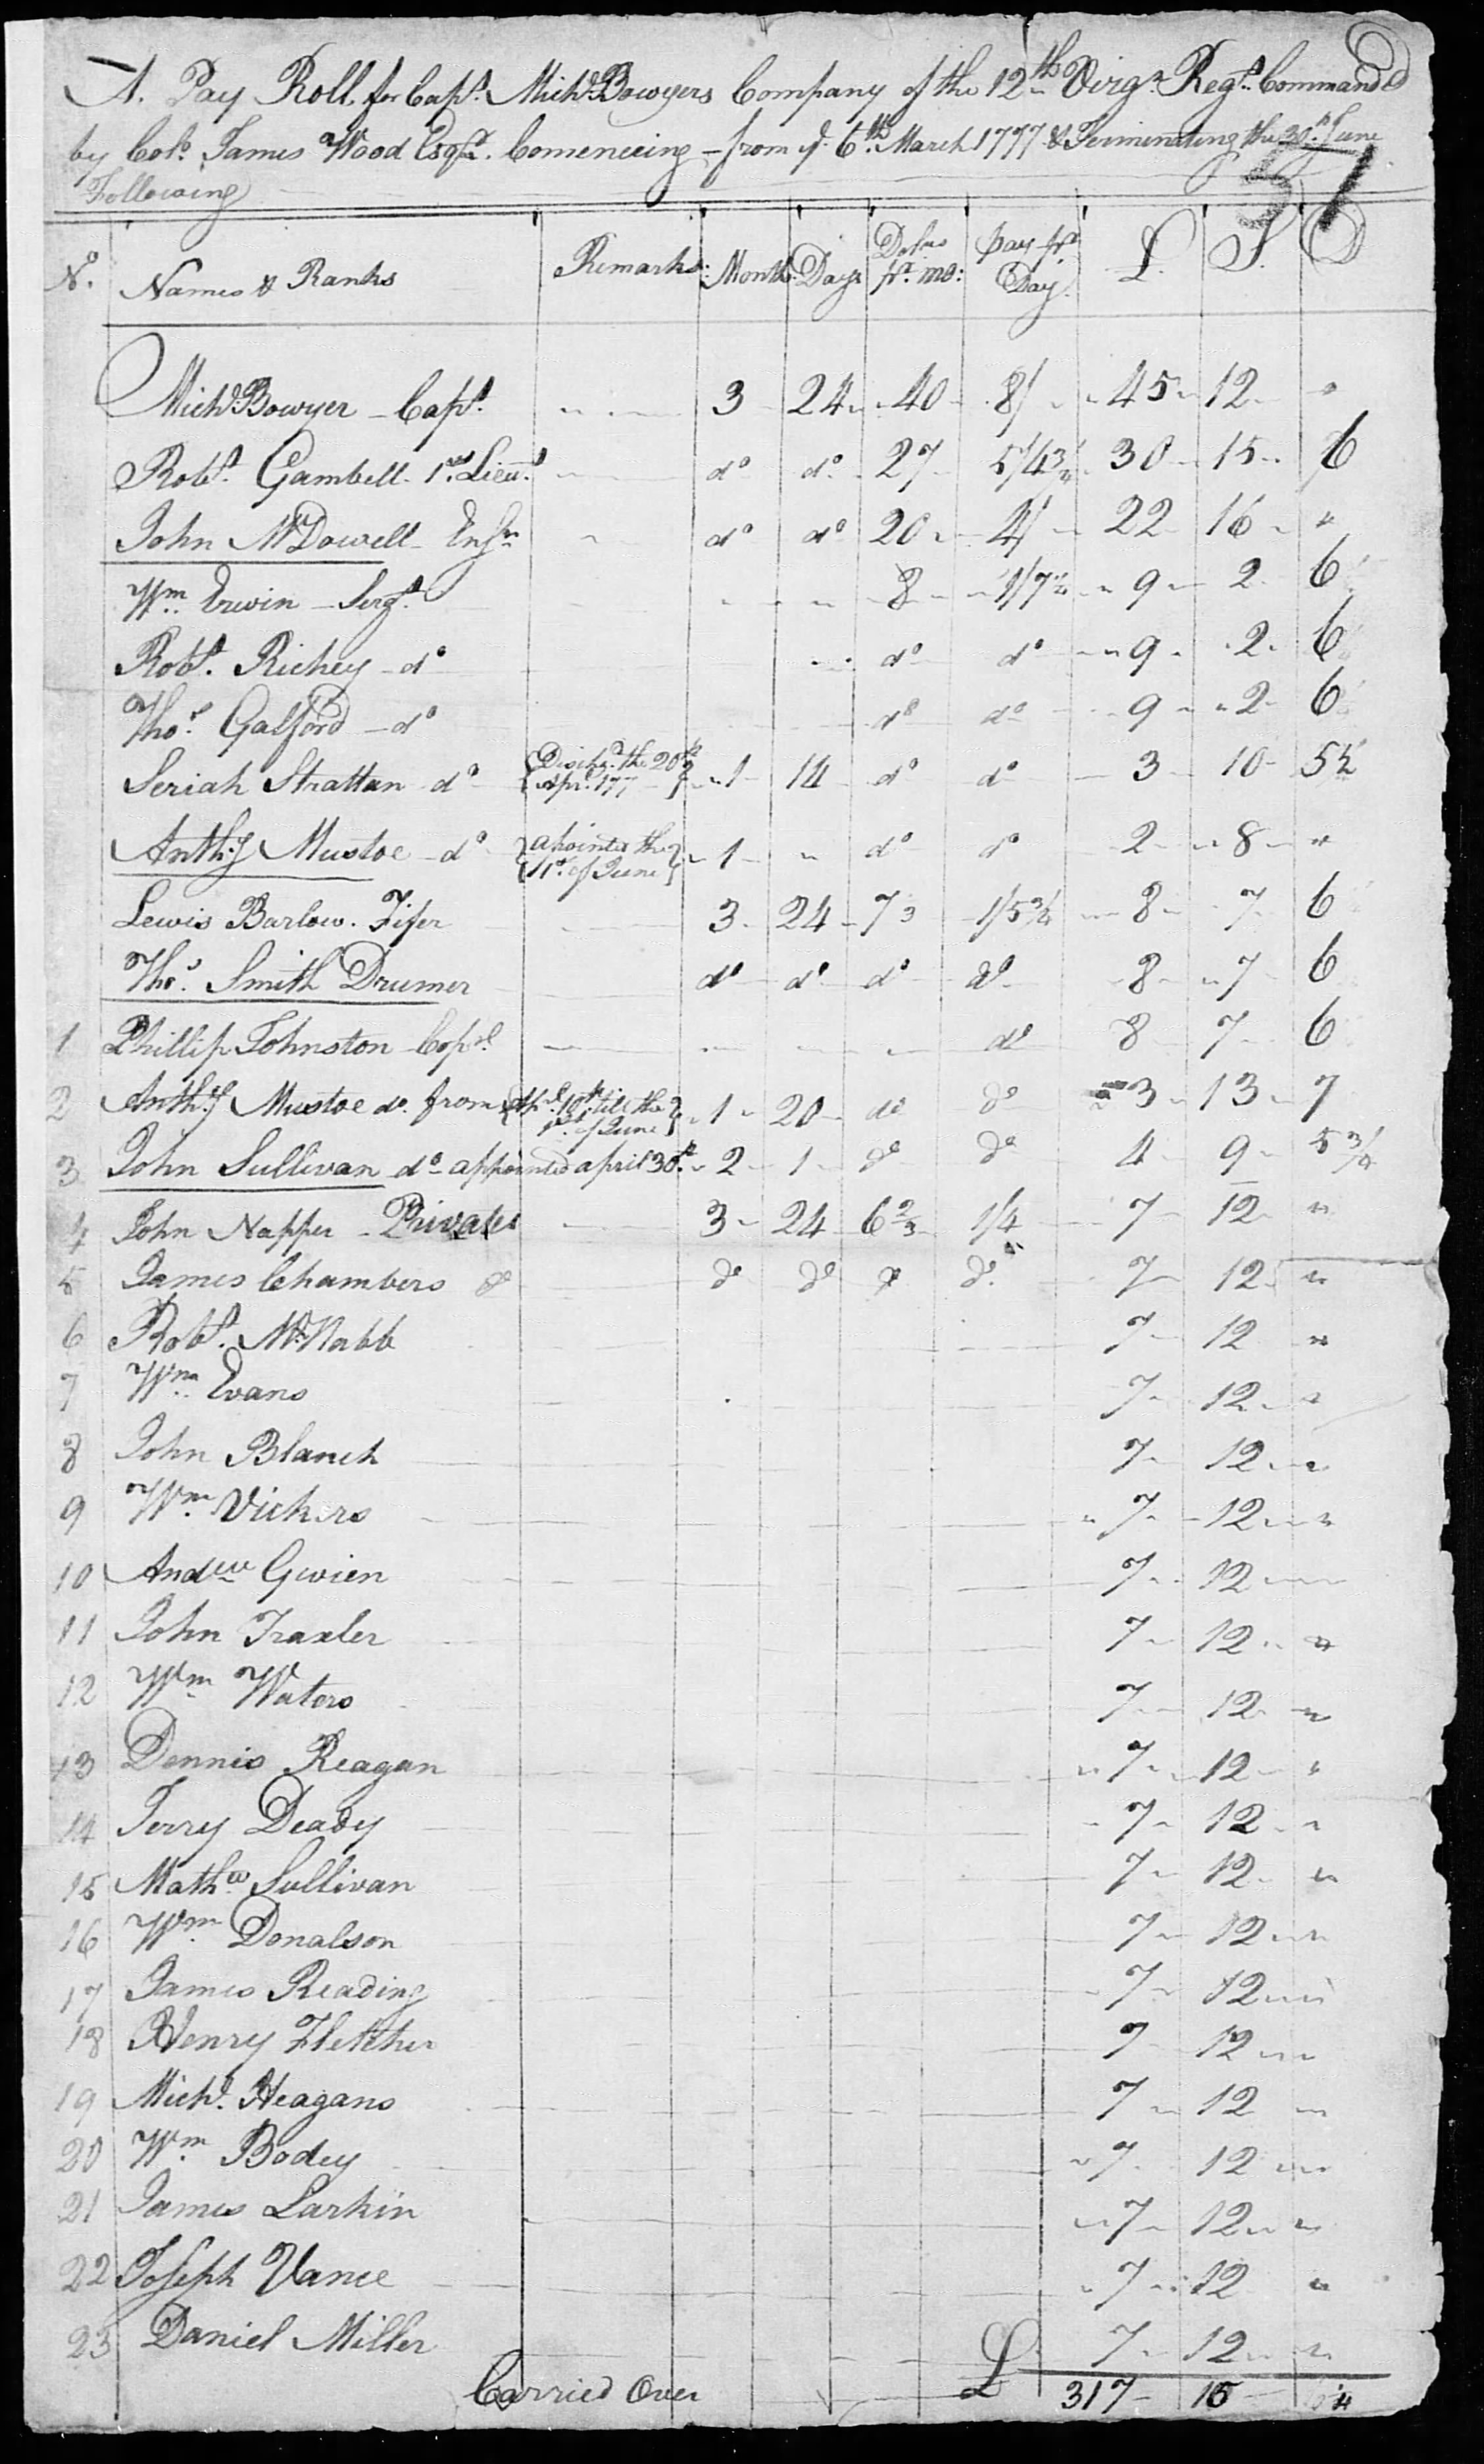 A. Pay Roll for Capt. Michl. Bowyers Company of the 12th Virga. Regt. Commanded
by Colo. James Wood Esqr. Comencing from ye. 6th March 1777 & Terminating the 30th June
Following
57
No. Names & Ranks Remarks: Month: Days Dolrs pr. mo: pay pr Day. L. S. D
Michl. Bowyer - Capt. 3 24 40 8/ 45 12 "
Robt. Gambell 1st Lieut. do do 27 5/4¾ 30 15 6
John McDowell Ensn do do 20 4/ 22 16 "
Wm Erwin - Sergt. 8 1/7 9 2 6
Robt. Richey - do do do 9 2 6
Thos. Galford - do do do 9 2 6
Seriah Strattan do {Dischd. the 20th Apr. 177} 1 14 do do 3 10 5½
Anthy Mustoe - do {apointed the 1st. of June} 1 " do do 2 8 "
Lewis Barlow. Fifer 3 24 7 3 1/5¾ 8 7 6
Thos. Smith Drumer do do do do 8 7 6
1 Phillip Johnston Corpl do 8 7 6
2 Anthy Mustoe do. from {Apl. 10th till the 1st. of June} 1 20 do do 3 13 7
3 John Sullivan do appointed april 30th 2 1 do do 4 9 5¾
4 John Napper - Privates 3 24 6⅔ 1/4 7 12 "
5 James Chambers do do do do do 7 12 "
6 Robt. McNabb 7 12 "
7 Wm Evans 7 12 "
8 John Blanch 7 12 "
9 Wm Vickers 7 12 "
10 Andw Gwien 7 12 "
11 John Traxler 7 12 "
12 Wm Waters 7 12 "
13 Dennis Reagan 7 12 "
14 Jerry Deady 7 12 "
15 Mathw Sullivan 7 12 "
16 Wm Donalson 7 12 "
17 James Reading 7 12 "
18 Henry Fletcher 7 12 "
19 Michl. Heagans 7 12 "
20 Wm Bodey 7 12 "
21 James Larkin 7 12 "
22 Joseph Vance 7 12 "
23 Daniel Miller 7 12 "
Carried Over L 317 15